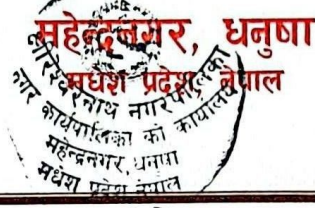 महेन्द्रनगर, धनुषा
मधेश प्रदेश, नेपाल
क्षीरेश्वरनाथ नगरपालिका
नगर कार्यपालिका को कार्यालय
महेन्द्रनगर, धनषा
मधेश प्रदेश नेपाल